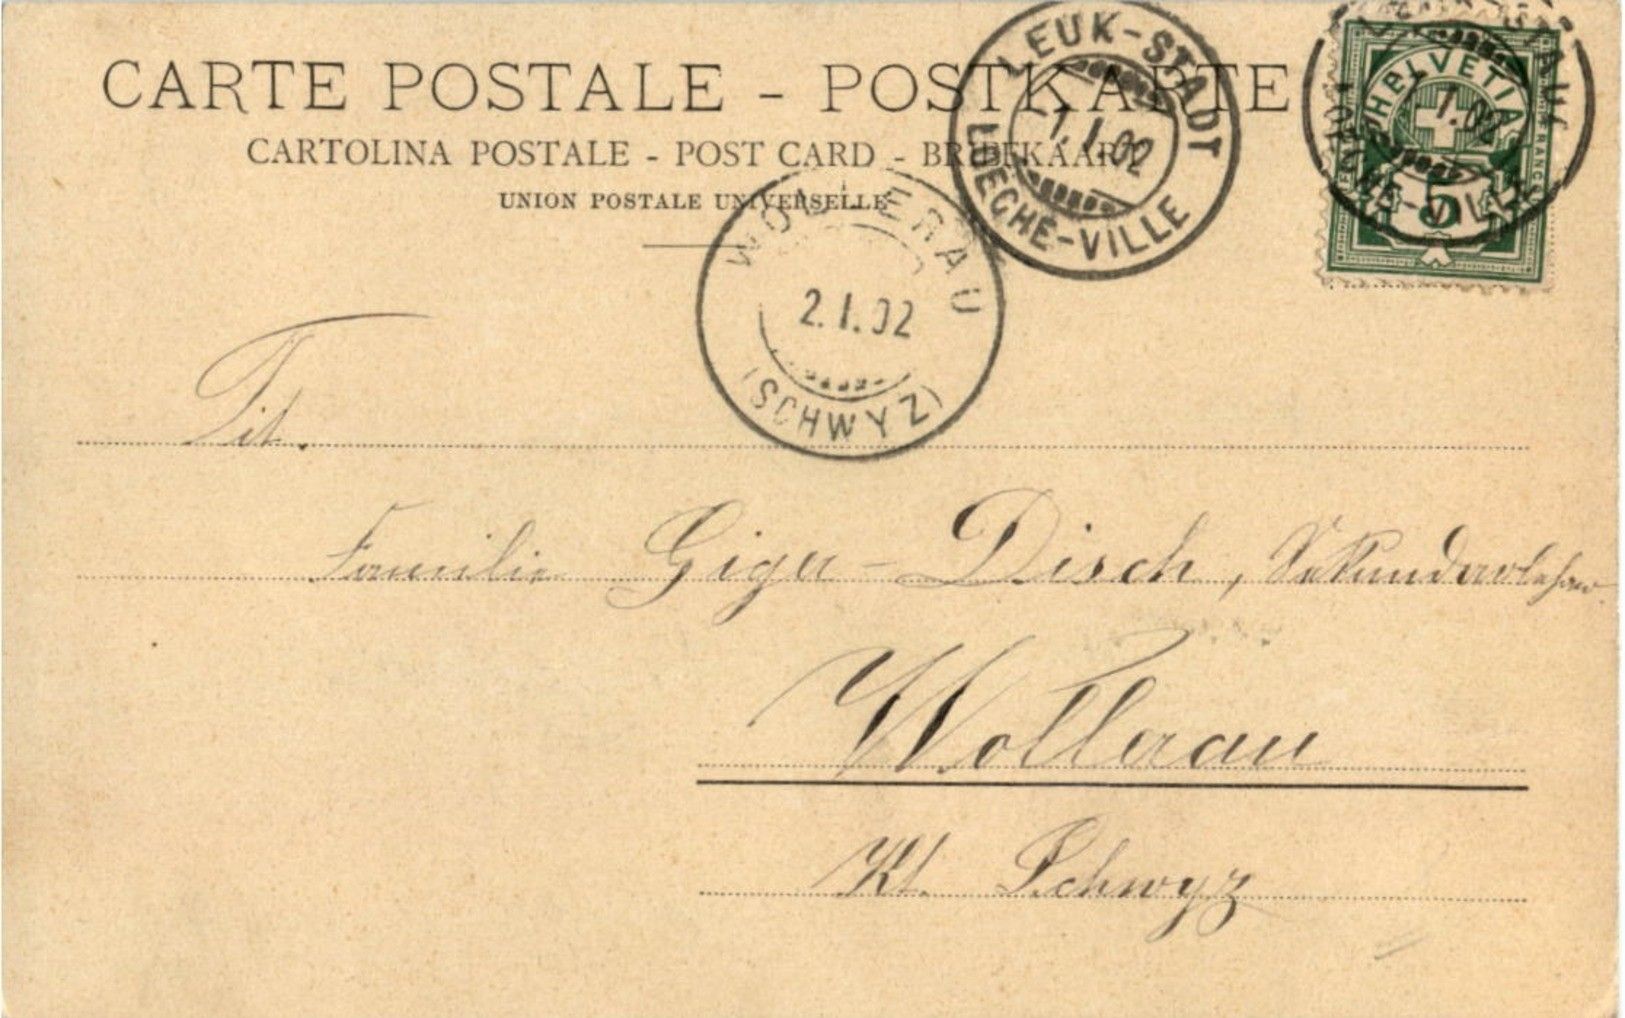 CARTE POSTALE - POSTKARTE
CARTOLINA POSTALE - POST CARD - BRIEFKAART
UNION POSTALE UNIVERSELLE
LEUK-STADT
1. I. 02
LOÈCHE-VILLE
HELVETIA
FRANCO
1. 02
5
WOLLERAU
2. I. 02
(SCHWYZ)
Tit.
Familie Giger - Disch, Sekundarlehrer
Wollerau
Kt. Schwyz